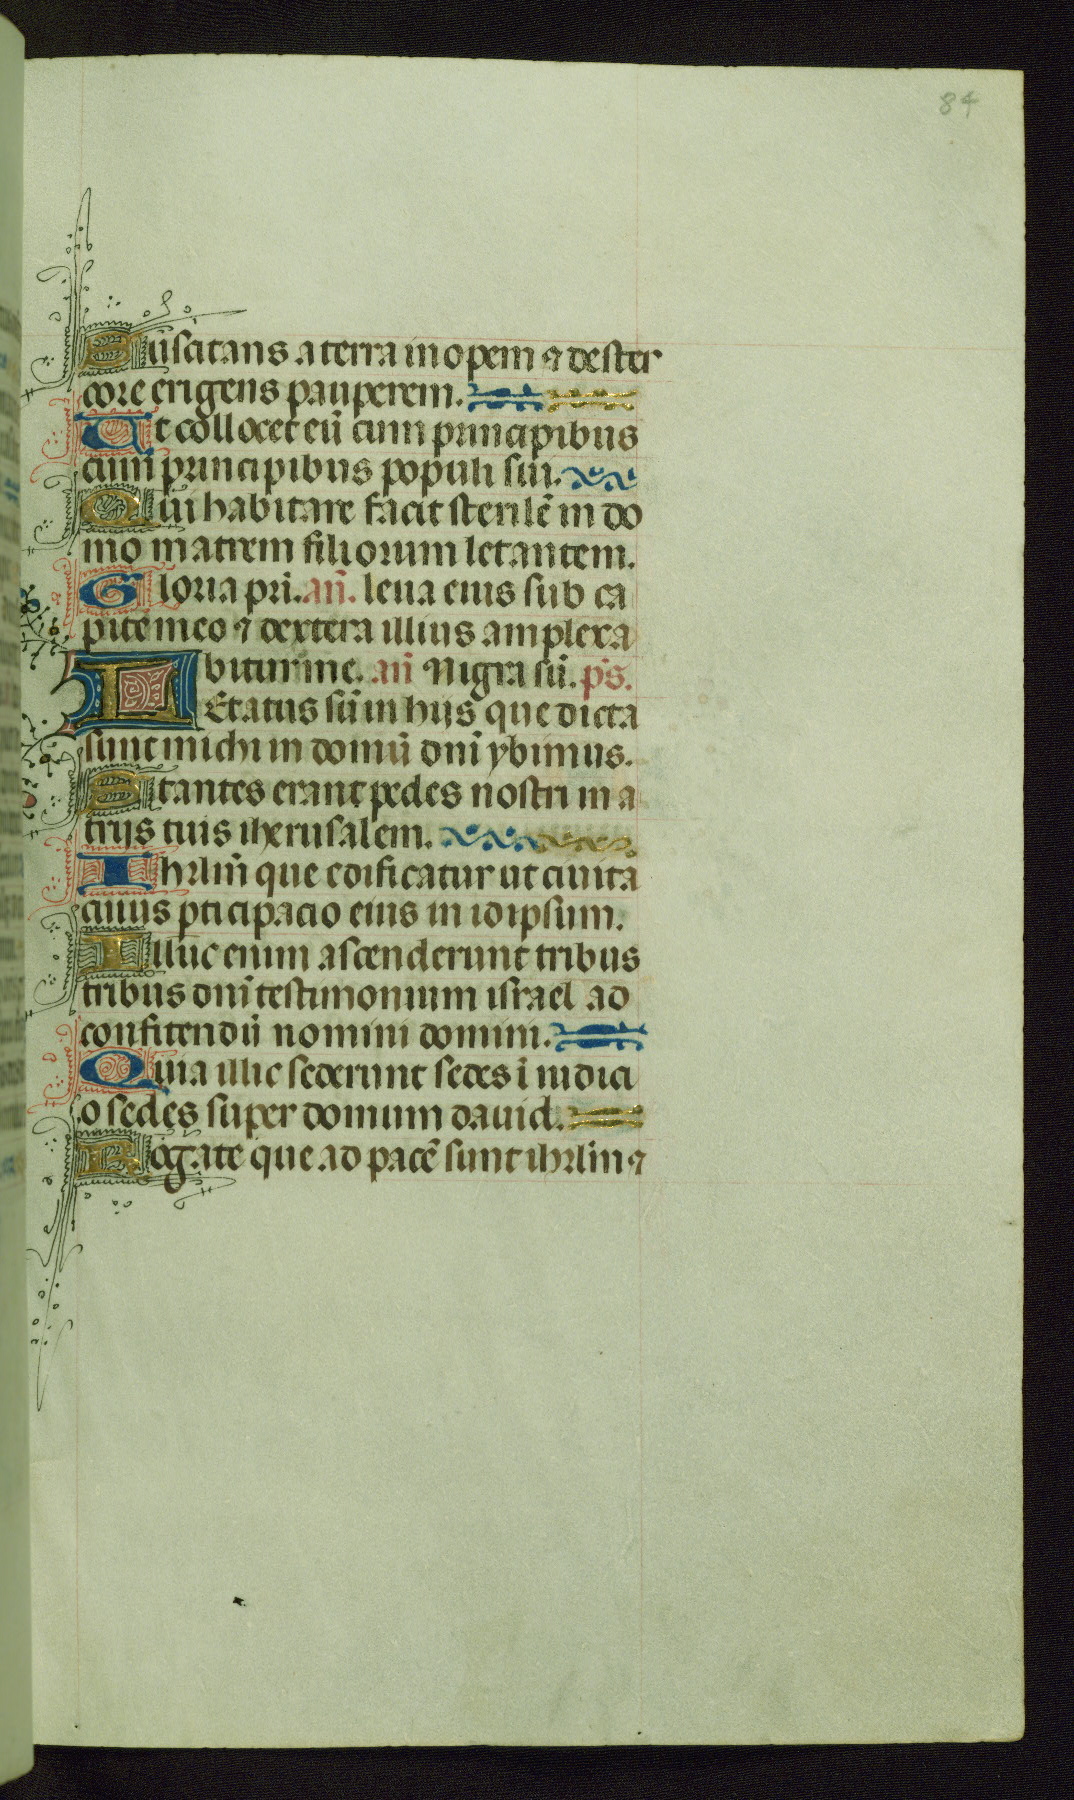 84
Suscitans a terra inopem ⁊ de ster
core erigens pauperem.
Ut collocet eū cum principibus
cum principibus populi sui.
Qui habitare facit sterilē in do
mo matrem filiorum letantem.
Gloria pri. añ. leua eius sub ca
pite meo ⁊ dextera illius amplexa
bitur me. añ Nigra sū. ps.
LEtatus sū in hijs que dicta
sunt michi in domū dn̄i ybimus.
Stantes erant pedes nostri in a
trijs tuis iherusalem.
Ihrlm̄ que edificatur ut ciuita
cuius pticipacio eius in idipsum.
Illuc enim ascenderunt tribus
tribus dn̄i testimonium israel ad
confitendū nomini domini.
Quia illic sederunt sedes ī iudici
o sedes super domum dauid.
Rogate que ad pacē sunt ihrlm ⁊